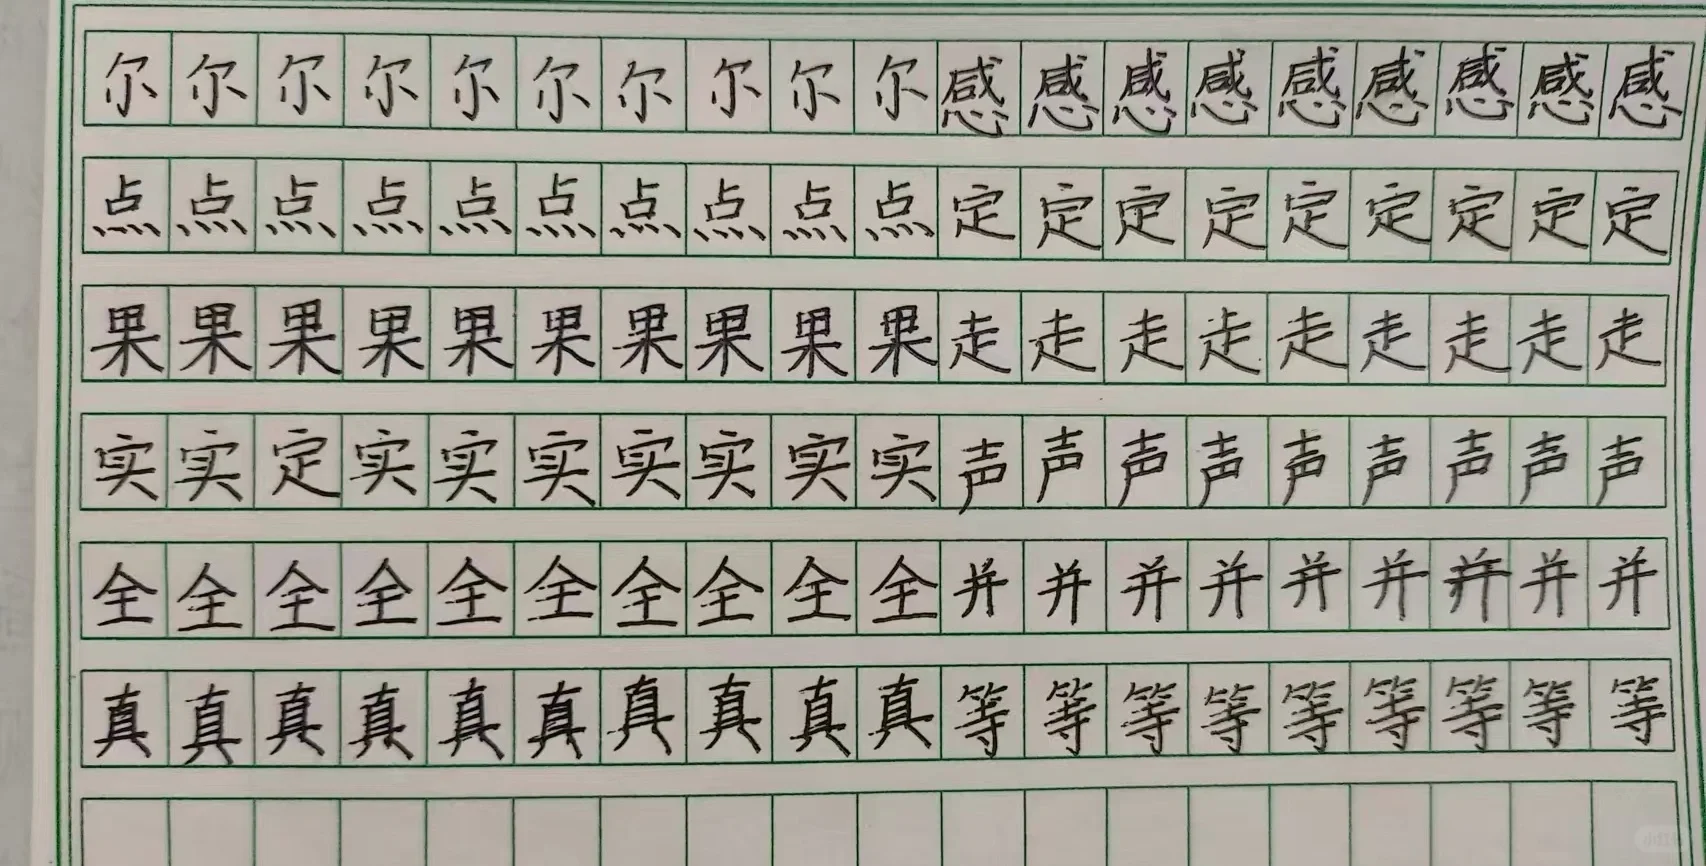 尔尔尔尔尔尔尔尔尔尔感感感感感感感感感
点点点点点点点点点点定定定定定定定定定
果果果果果果果果果果走走走走走走走走走
实实定实实实实实实实声声声声声声声声声
全全全全全全全全全全并并并并并并并并并
真真真真真真真真真真等等等等等等等等等